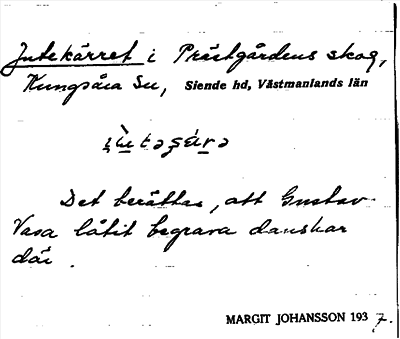 Jutekärret i Prästgårdens skog,
Kungsåra Sn, Siende hd, Västmanlands län
Det berättas, att Gustav
Vasa låtit begrava danskar
där.
MARGIT JOHANSSON 1937.